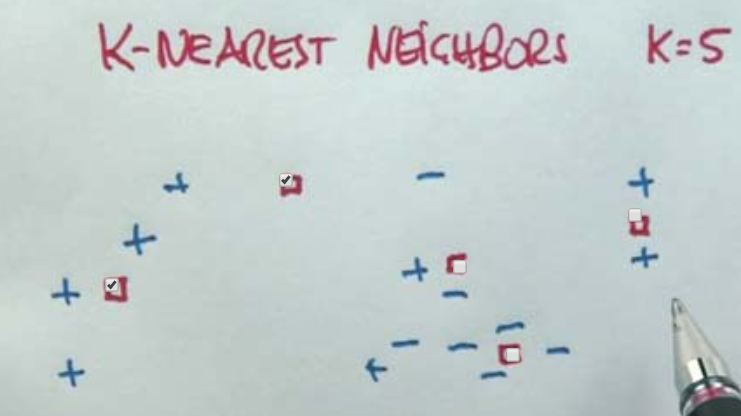 K-NEAREST NEIGHBORS K=5